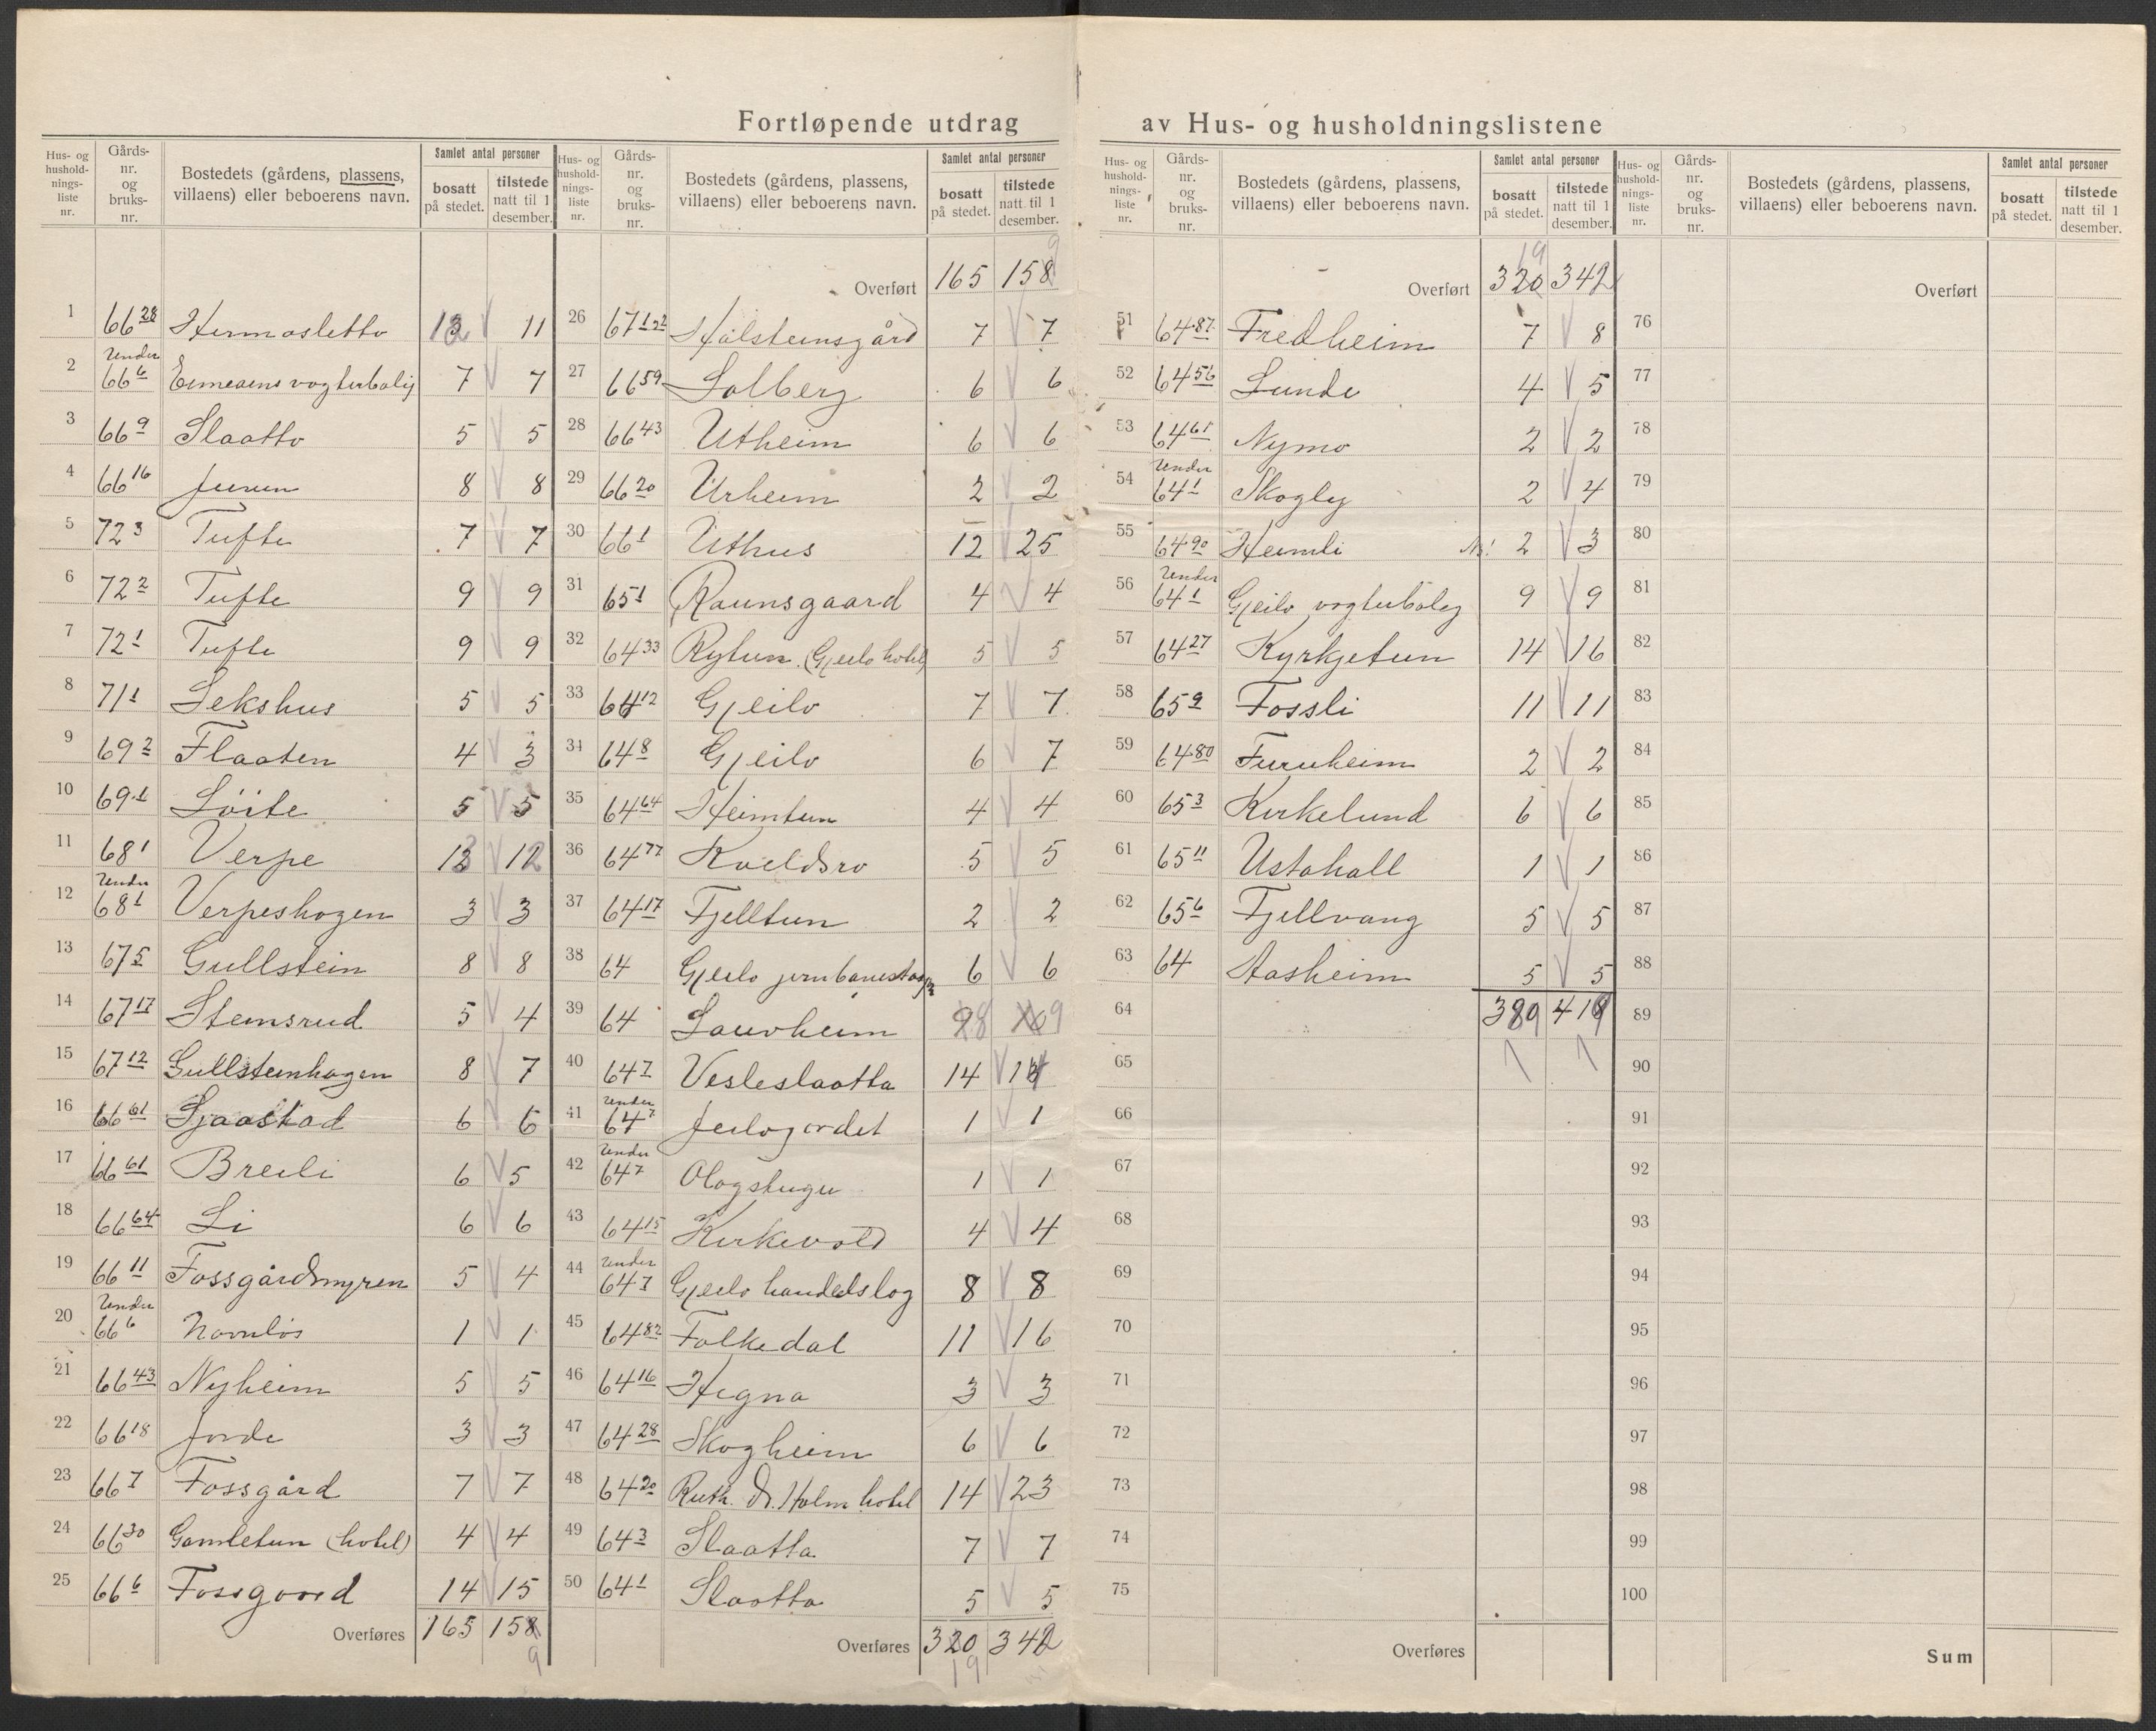 Fortløpende utdrag av Hus- og husholdningslistene
Hus- og husholdningsliste nr. | Gårdsnr. og bruksnr. | Bostedets (gårdens, plassens, villaens) eller beboerens navn. | Samlet antal personer | bosatt på stedet. | tilstede natt til 1 desember.
1 66 28 Hermosletto 13 11
2 Under 66 6 vogterbolig 7 7
3 66 9 Slaatto 5 5
4 66 16 Jeuen 8 8
5 72 3 Tufte 7 7
6 72 2 Tufte 9 9
7 72 1 Tufte 9 9
8 71 1 Sekshus 5 5
9 69 2 Flaaten 4 3
10 69 1 Löite 5 5
11 68 1 Verpe 13 12
12 Under 68 1 Verpeshagen 3 3
13 67 5 Gullstein 8 8
14 67 17 Stensrud 5 4
15 67 12 Gullsteinhagen 8 7
16 66 61 Sjaastad 6 6
17 66 61 Breili 6 5
18 66 64 Li 6 6
19 66 11 Fossgårdsmyren 5 4
20 Under 66 6 Navnløs 1 1
21 66 43 Nyheim 5 5
22 66 18 Jorde 3 3
23 66 7 Fossgård 7 7
24 66 30 Gamletun (hotel) 4 4
25 66 6 Fossgaard 14 15
Overføres 165 158
9
Hus- og husholdningsliste nr. | Gårdsnr. og bruksnr. | Bostedets (gårdens, plassens, villaens) eller beboerens navn. | Samlet antal personer | bosatt på stedet. | tilstede natt til 1 desember.
9
Overført 165 158
26 67 1,22 Halsteinsgård 7 7
27 66 59 Solberg 6 6
28 66 43 Utheim 6 6
29 66 20 Urheim 2 2
30 66 1 Uthus 12 25
31 65 1 Raunsgaard 4 4
32 64 33 Rytun (Gjeilo hotel) 5 5
33 64 12 Gjeilo 7 7
34 64 8 Gjeilo 6 7
35 64 64 Heimtun 4 4
36 64 77 Kveldsro 5 5
37 64 17 Fjelltun 2 2
38 64 Gjeilo jernbanestasjon 6 6
39 64 Lauvheim 8 9
40 64 7 Vesleslaatta 14 14
41 Under 64 7 Jeilogardet 1 1
42 Under 64 7 Olagstugu 1 1
43 64 15 Kirkevold 4 4
44 Under 64 7 Gjeilo handelslag 8 8
45 64 82 Folkedal 11 16
46 64 16 Hegna 3 3
47 64 28 Skogheim 6 6
48 64 20 Ruth. Dr. Holm hotel 14 23
49 64 3 Slaatta 7 7
50 64 1 Slaatta 5 5
Overføres 320 342
19
Hus- og husholdningsliste nr. | Gårdsnr. og bruksnr. | Bostedets (gårdens, plassens, villaens) eller beboerens navn. | Samlet antal personer | bosatt på stedet. | tilstede natt til 1 desember.
19
Overført 320 342
51 64 87 Fredheim 7 8
52 64 56 Lunde 4 5
53 64 61 Nymo 2 2
54 Under 64 1 Skogly 2 4
55 64 90 Heimli 2 3
56 Under 64 1 Gjeilo vogterbolig 9 9
57 64 27 Kyrkjetun 14 16
58 65 9 Fossli 11 11
59 64 80 Furuheim 2 2
60 65 3 Kirkelund 6 6
61 65 11 Ustahall 1 1
62 65 6 Fjellvang 5 5
63 64 Aasheim 5 5
64 389 419
65
66
67
68
69
70
71
72
73
74
75
Overføres
Hus- og husholdningsliste nr. | Gårdsnr. og bruksnr. | Bostedets (gårdens, plassens, villaens) eller beboerens navn. | Samlet antal personer | bosatt på stedet. | tilstede natt til 1 desember.
Overført
76
77
78
79
80
81
82
83
84
85
86
87
88
89
90
91
92
93
94
95
96
97
98
99
100
Sum